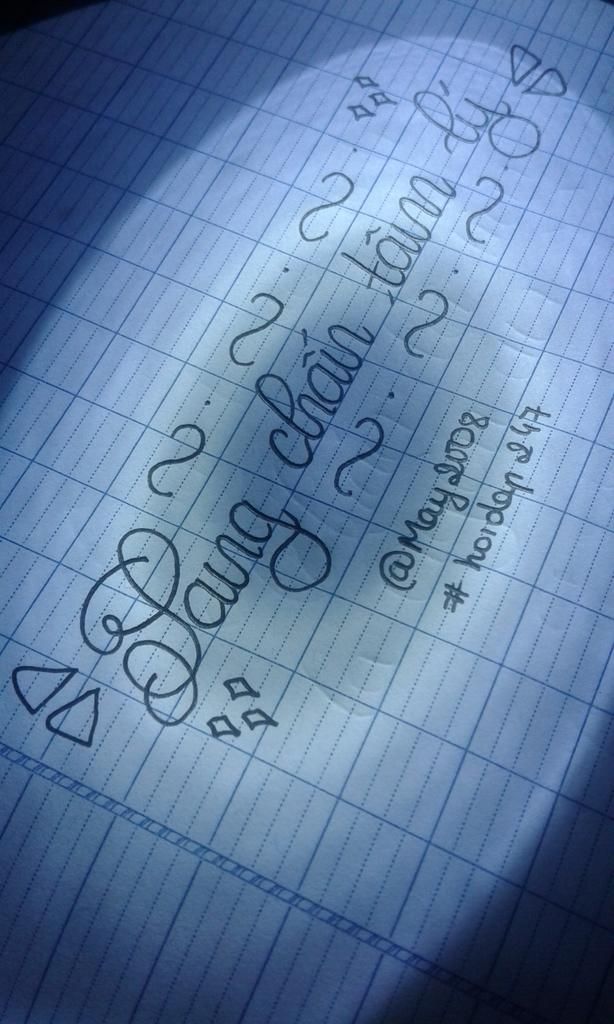 Sang chấn tâm lý
@May2008
# hoidap247